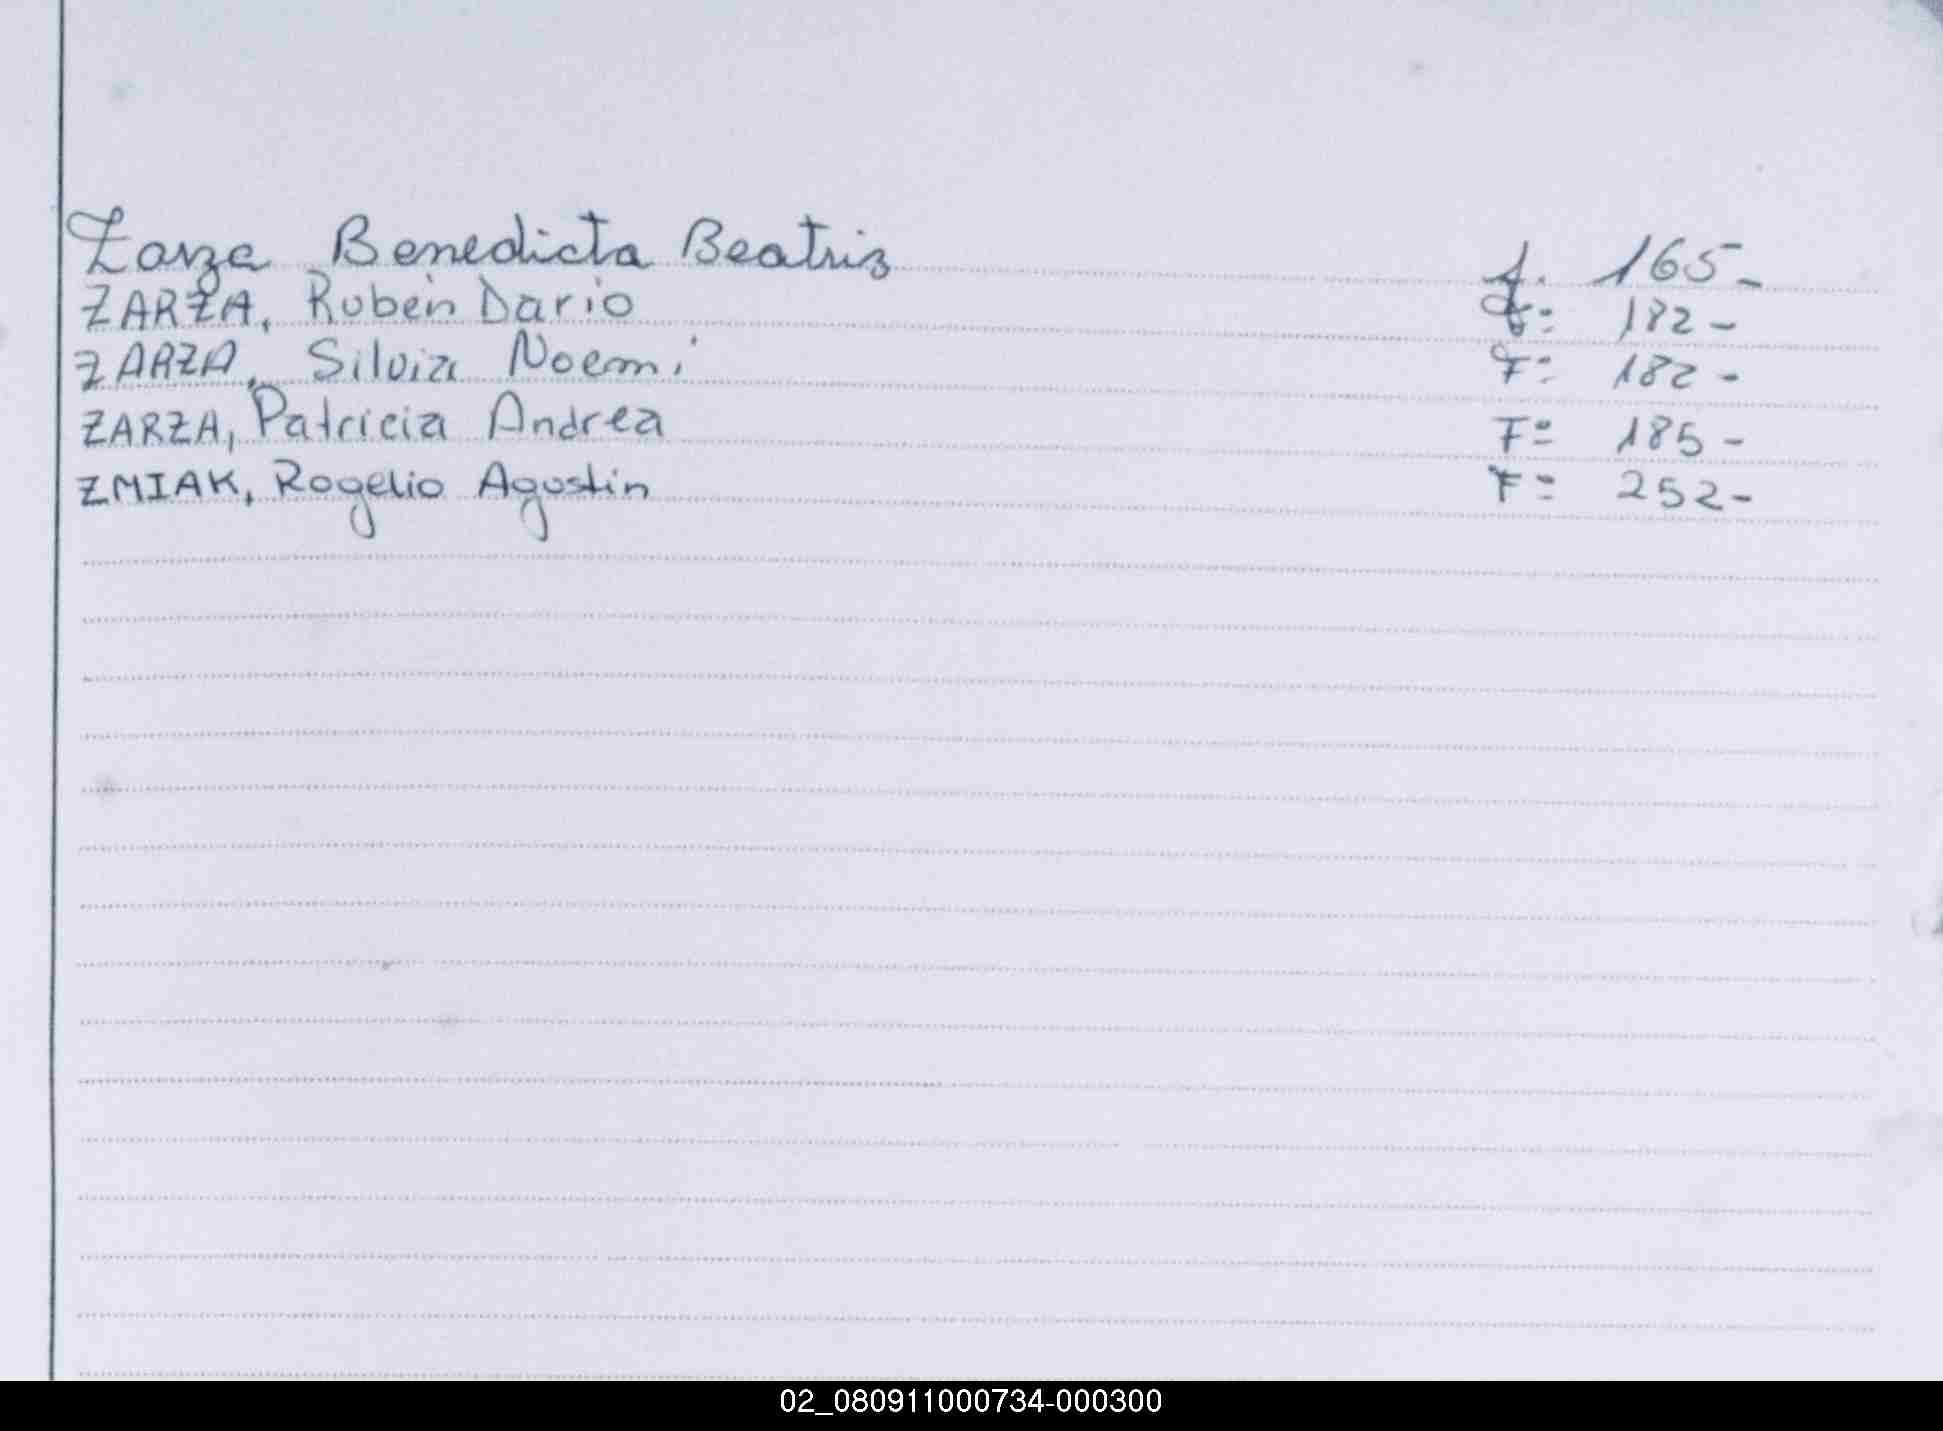 Zarza Benedicta Beatriz f. 165-
ZARZA, Rubén Dario F= 182-
ZARZA, Silvia Noemi F= 182-
ZARZA, Patricia Andrea F= 185-
ZMIAK, Rogelio Agustin F= 252-
02_080911000734-000300